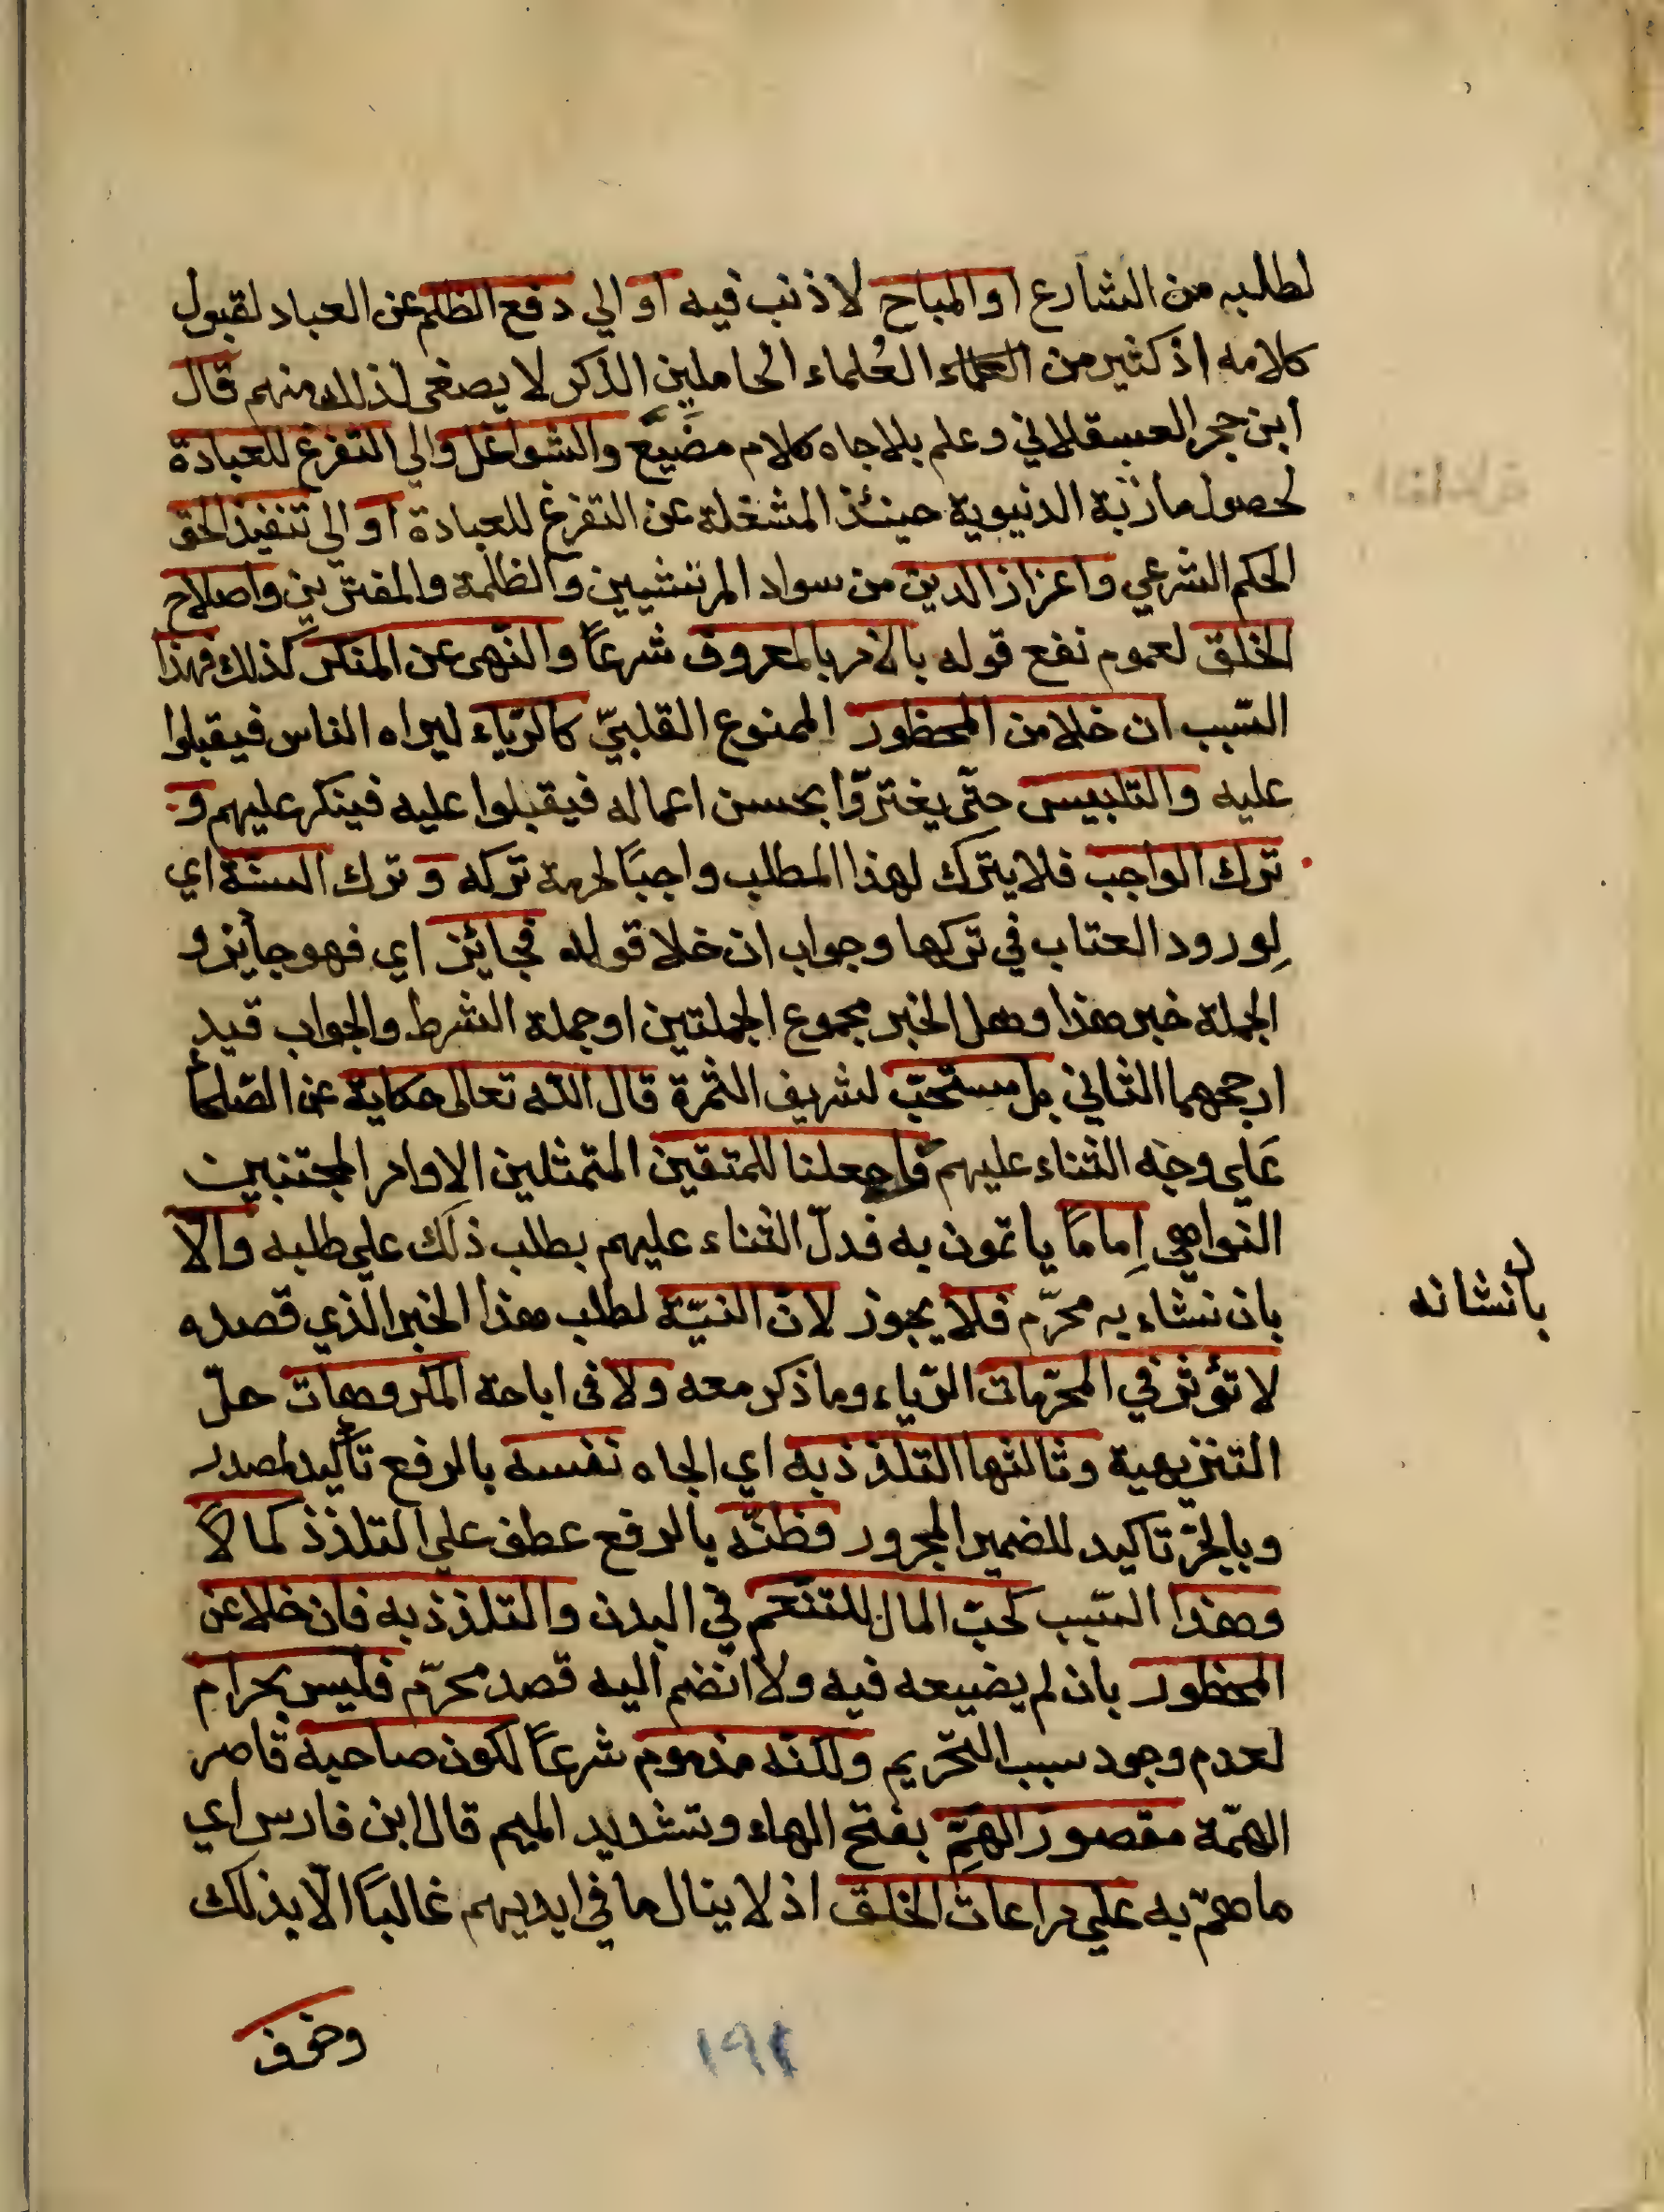 لطلبه من الشارع او المباح لا ذنب فيه او الي دفع الظلم عن العباد لقبول
كلامه اذ كثير من العلماء العُلماء الحاملين الذكر لا يصغى لذلك منهم قال
ابن حجر العسقلاني وعلم بلا جاه كلام مضيَّع والشواغل والي التفرغ للعبادة
لحصول مأربه الدنيوية حينئذ المشغلة عن التفرغ للعبادة او الي تنفيذ الحق
الحكم الشرعي واعزاز الدين من سواد المرتشيين والظلمة والمفترين واصلاح
الخلق لعموم نفع قوله بالامر بالمعروف شرعًا والنّهى عن المنكر كذلك فهذا
السّبب ان خلا من المحظور الممنوع القلبيّ كالرّياء ليراه الناس فيقبلوا
عليه والتلبيس حتّى يغترّوا بحسن اعماله فيقبلوا عليه فينكر عليهم و
ترك الواجب فلا يترك لهذا المطلب واجبًا لحرمة تركه وترك السنّة اي
لِورود العتاب في تركها وجواب ان خلا قوله فجائز اي فهو جايز و
الجملة خبر هذا وهل الخبر مجموع الجملتين او جملة الشرط والجواب قيد
ارجحهما الثاني بل مستحبّ لشريف الثمرة قال الله تعالى حكاية عن الصّلحا
عَلي وجه الثناء عليهم واجعلنا للمتقين المتمثلين الاوامر المجتنبين
النّواهي اِمامًا ياتمون به فدلّ الثناء عليهم بطلب ذلك علي طلبه والّا
بان نشاء به محرّم فلا يجوز لانّ النيّة لطلب هذا الخبر الذي قصده
لا تؤثر في المحرّمات الرّياء وما ذكر معه ولا فى اباحة المكروهات حلّ
التنزيهية وثالثها التلذذ به اي الجاه نفسه بالرفع تأكيد لمصدر
وبالجرّ تاكيد للضمير المجرور وظنّه بالرفع عطف علي التلذذ كمالًا
وهذا السّبب كحبّ المال للتنعّم في البدن والتلذذ به فان خلا عن
المحظور بان لم يضيعه فيه ولا انضم اليه قصد محرّم فليس بحرام
لعدم وجود سبب التّحريم ولكنّه مذموم شرعًا لكون صاحبه قاصر
الهمّة مقصورَ الهَمِّ بفتح الهاء وتشديد الميم قال ابن فارس اي
ما همّ به علي مراعات الخلق اذ لا ينال ما في ايديهم غالبًا الّا بذلك
وخوف
بانشانه
١٩٢